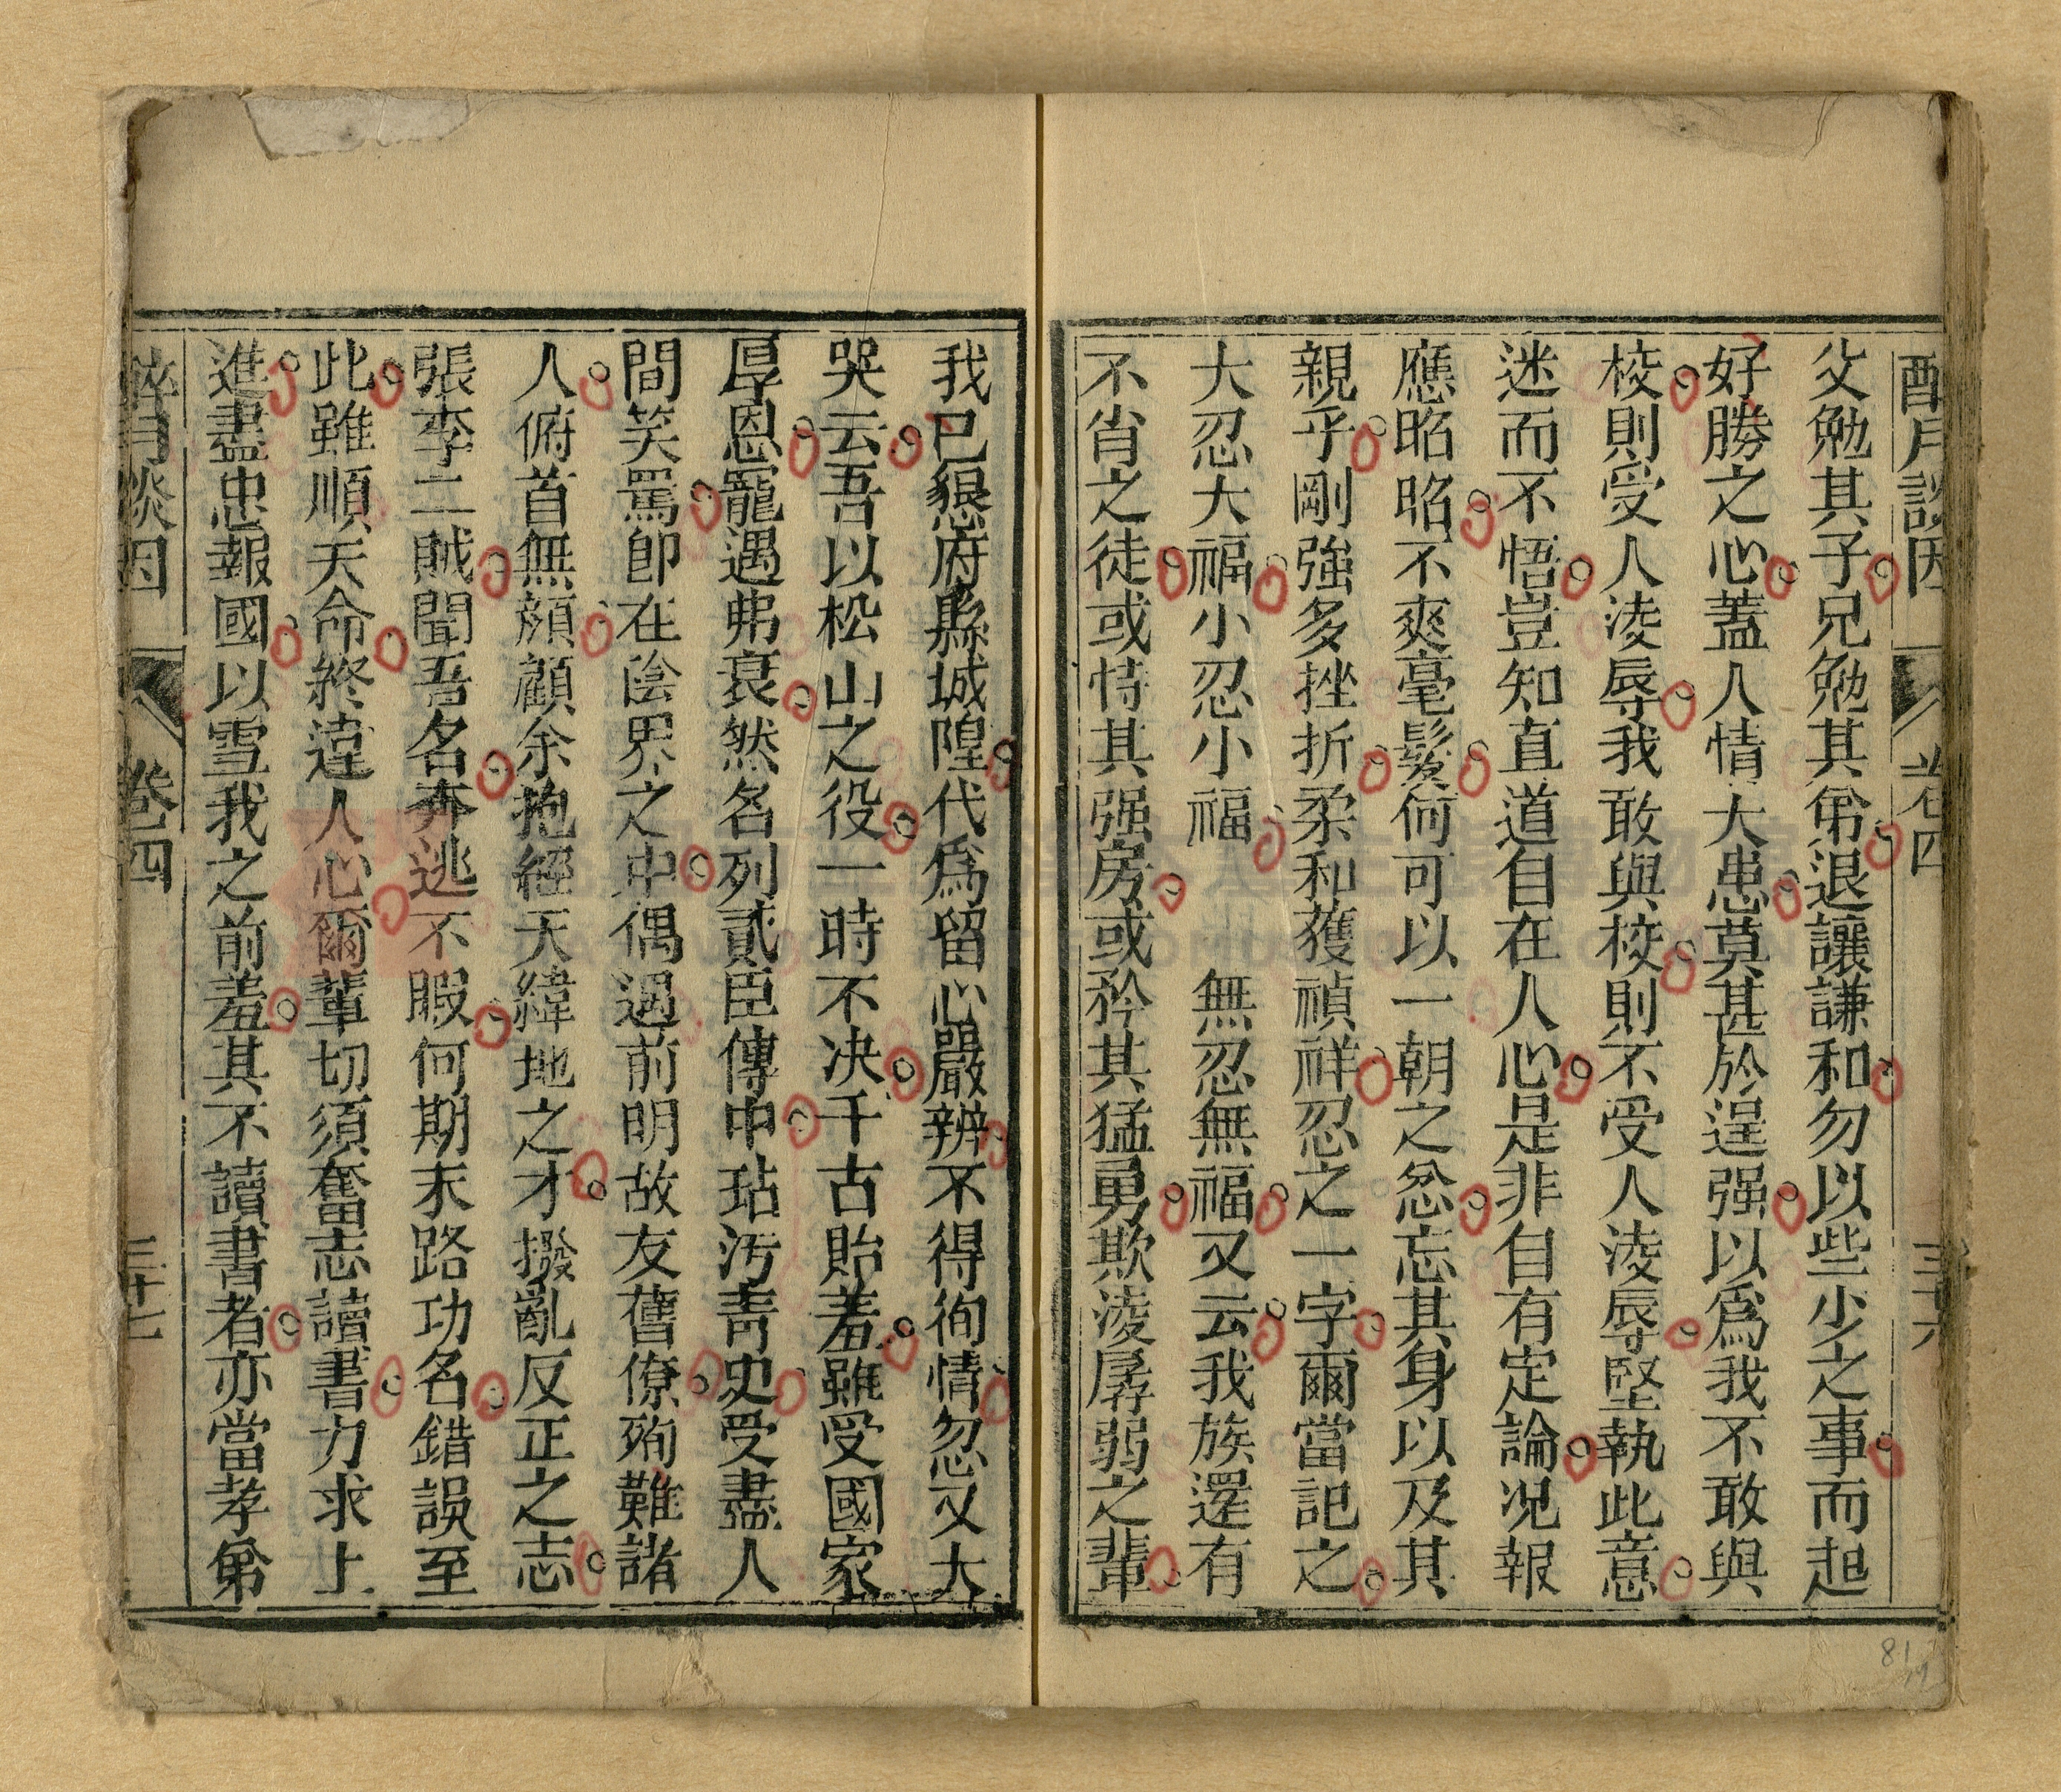 醉月談因 卷四 三十六
父勉其子兄勉其弟退讓謙和勿以些少之事而起
好勝之心蓋人情大患莫甚於逞强以爲我不敢與
校則受人淩辱我敢與校則不受人淩辱堅執此意
迷而不悟豈知直道自在人心是非自有定論况報
應昭昭不爽毫髮何可以一朝之忿忘其身以及其
親乎剛強多挫折柔和獲禎祥忍之一字爾當記之
大忍大福小忍小福 無忍無福又云我族還有
不肖之徒或恃其强房或矜其猛勇欺淩孱弱之輩
我已懇府縣城隍代爲留心嚴辨不得徇情忽又大
哭云吾以松山之役一時不决千古貽羞雖受國家
厚恩寵遇弗衰然名列貳臣傳中玷汚青史受盡人
間笑罵卽在陰界之中偶遇前明故友舊僚殉難諸
人俯首無顔顧余抱經天緯地之才撥亂反正之志
張李二賊聞吾名奔逃不暇何期末路功名錯誤至
此雖順天命終違人心爾輩切須奮志讀書力求上
進盡忠報國以雪我之前羞其不讀書者亦當孝弟
醉月談因 卷四 三十七